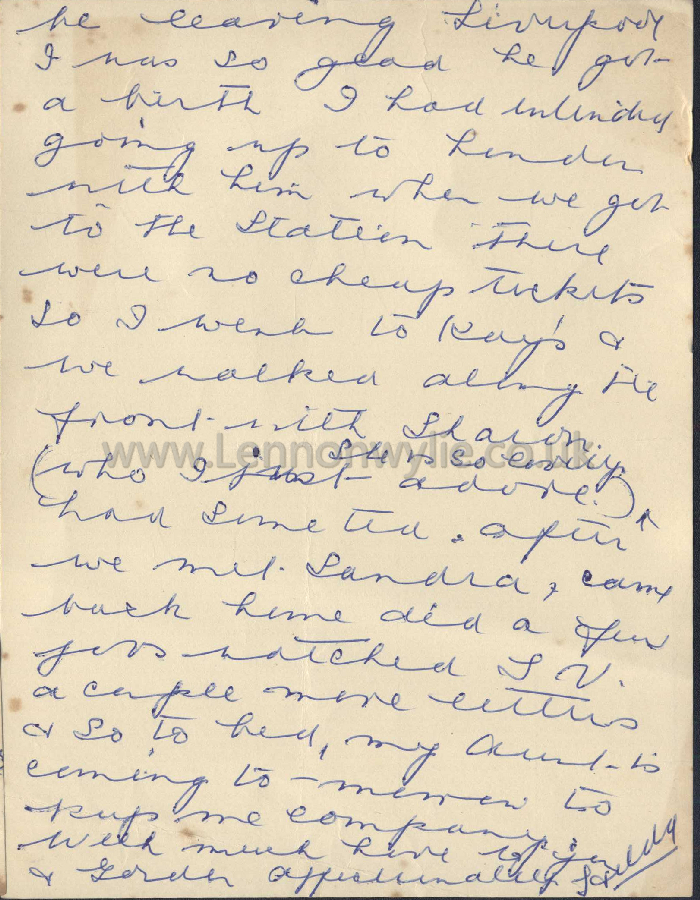 be leaving Liverpool
I was so glad he got
a birth I had intended
going up to London
with him when we got
to the Station there
were no cheap tickets
so I went to Kay's &
we walked along the
front with Sharon
www.Lennonwylie.co.uk
She is so lovely
(who I just adore.)
had some tea. after
we met Sandra, came
back home did a few
jobs watched T V.
a couple more letters
& so to bed, my Aunt is
coming to-morrow to
keep me company.
With much love to you
& Gordon affectionately